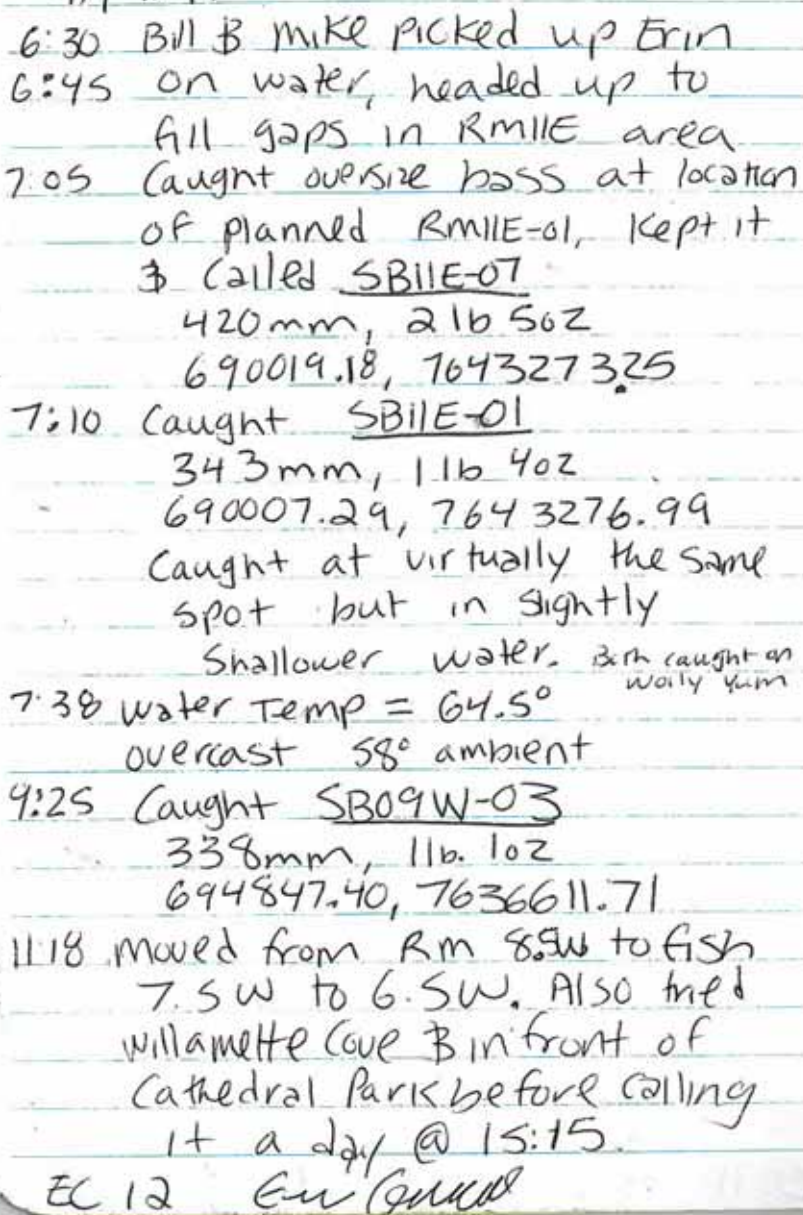 6:30 Bill & mike picked up Erin
6:45 on water, headed up to
fill gaps in RM11E area
7:05 Caught oversize bass at location
of planned RM11E-01, Kept it
& Called SB11E-07
420mm, 2 lb 5oz
690019.18, 7643273.25
7:10 Caught SB11E-01
343mm, 1 lb 4oz
690007.29, 7643276.99
Caught at virtually the same
spot but in slightly
Shallower water. Both caught on
wooly yum
7:38 water Temp = 64.5°
overcast 58° ambient
9:25 Caught SB09W-03
338mm, 1 lb. 1oz
694847.40, 7636611.71
11:18 moved from Rm 8.5W to fish
7.5W to 6.5W. Also tried
Willamette Cove & in front of
Cathedral Park before calling
it a day @ 15:15.
EC 12